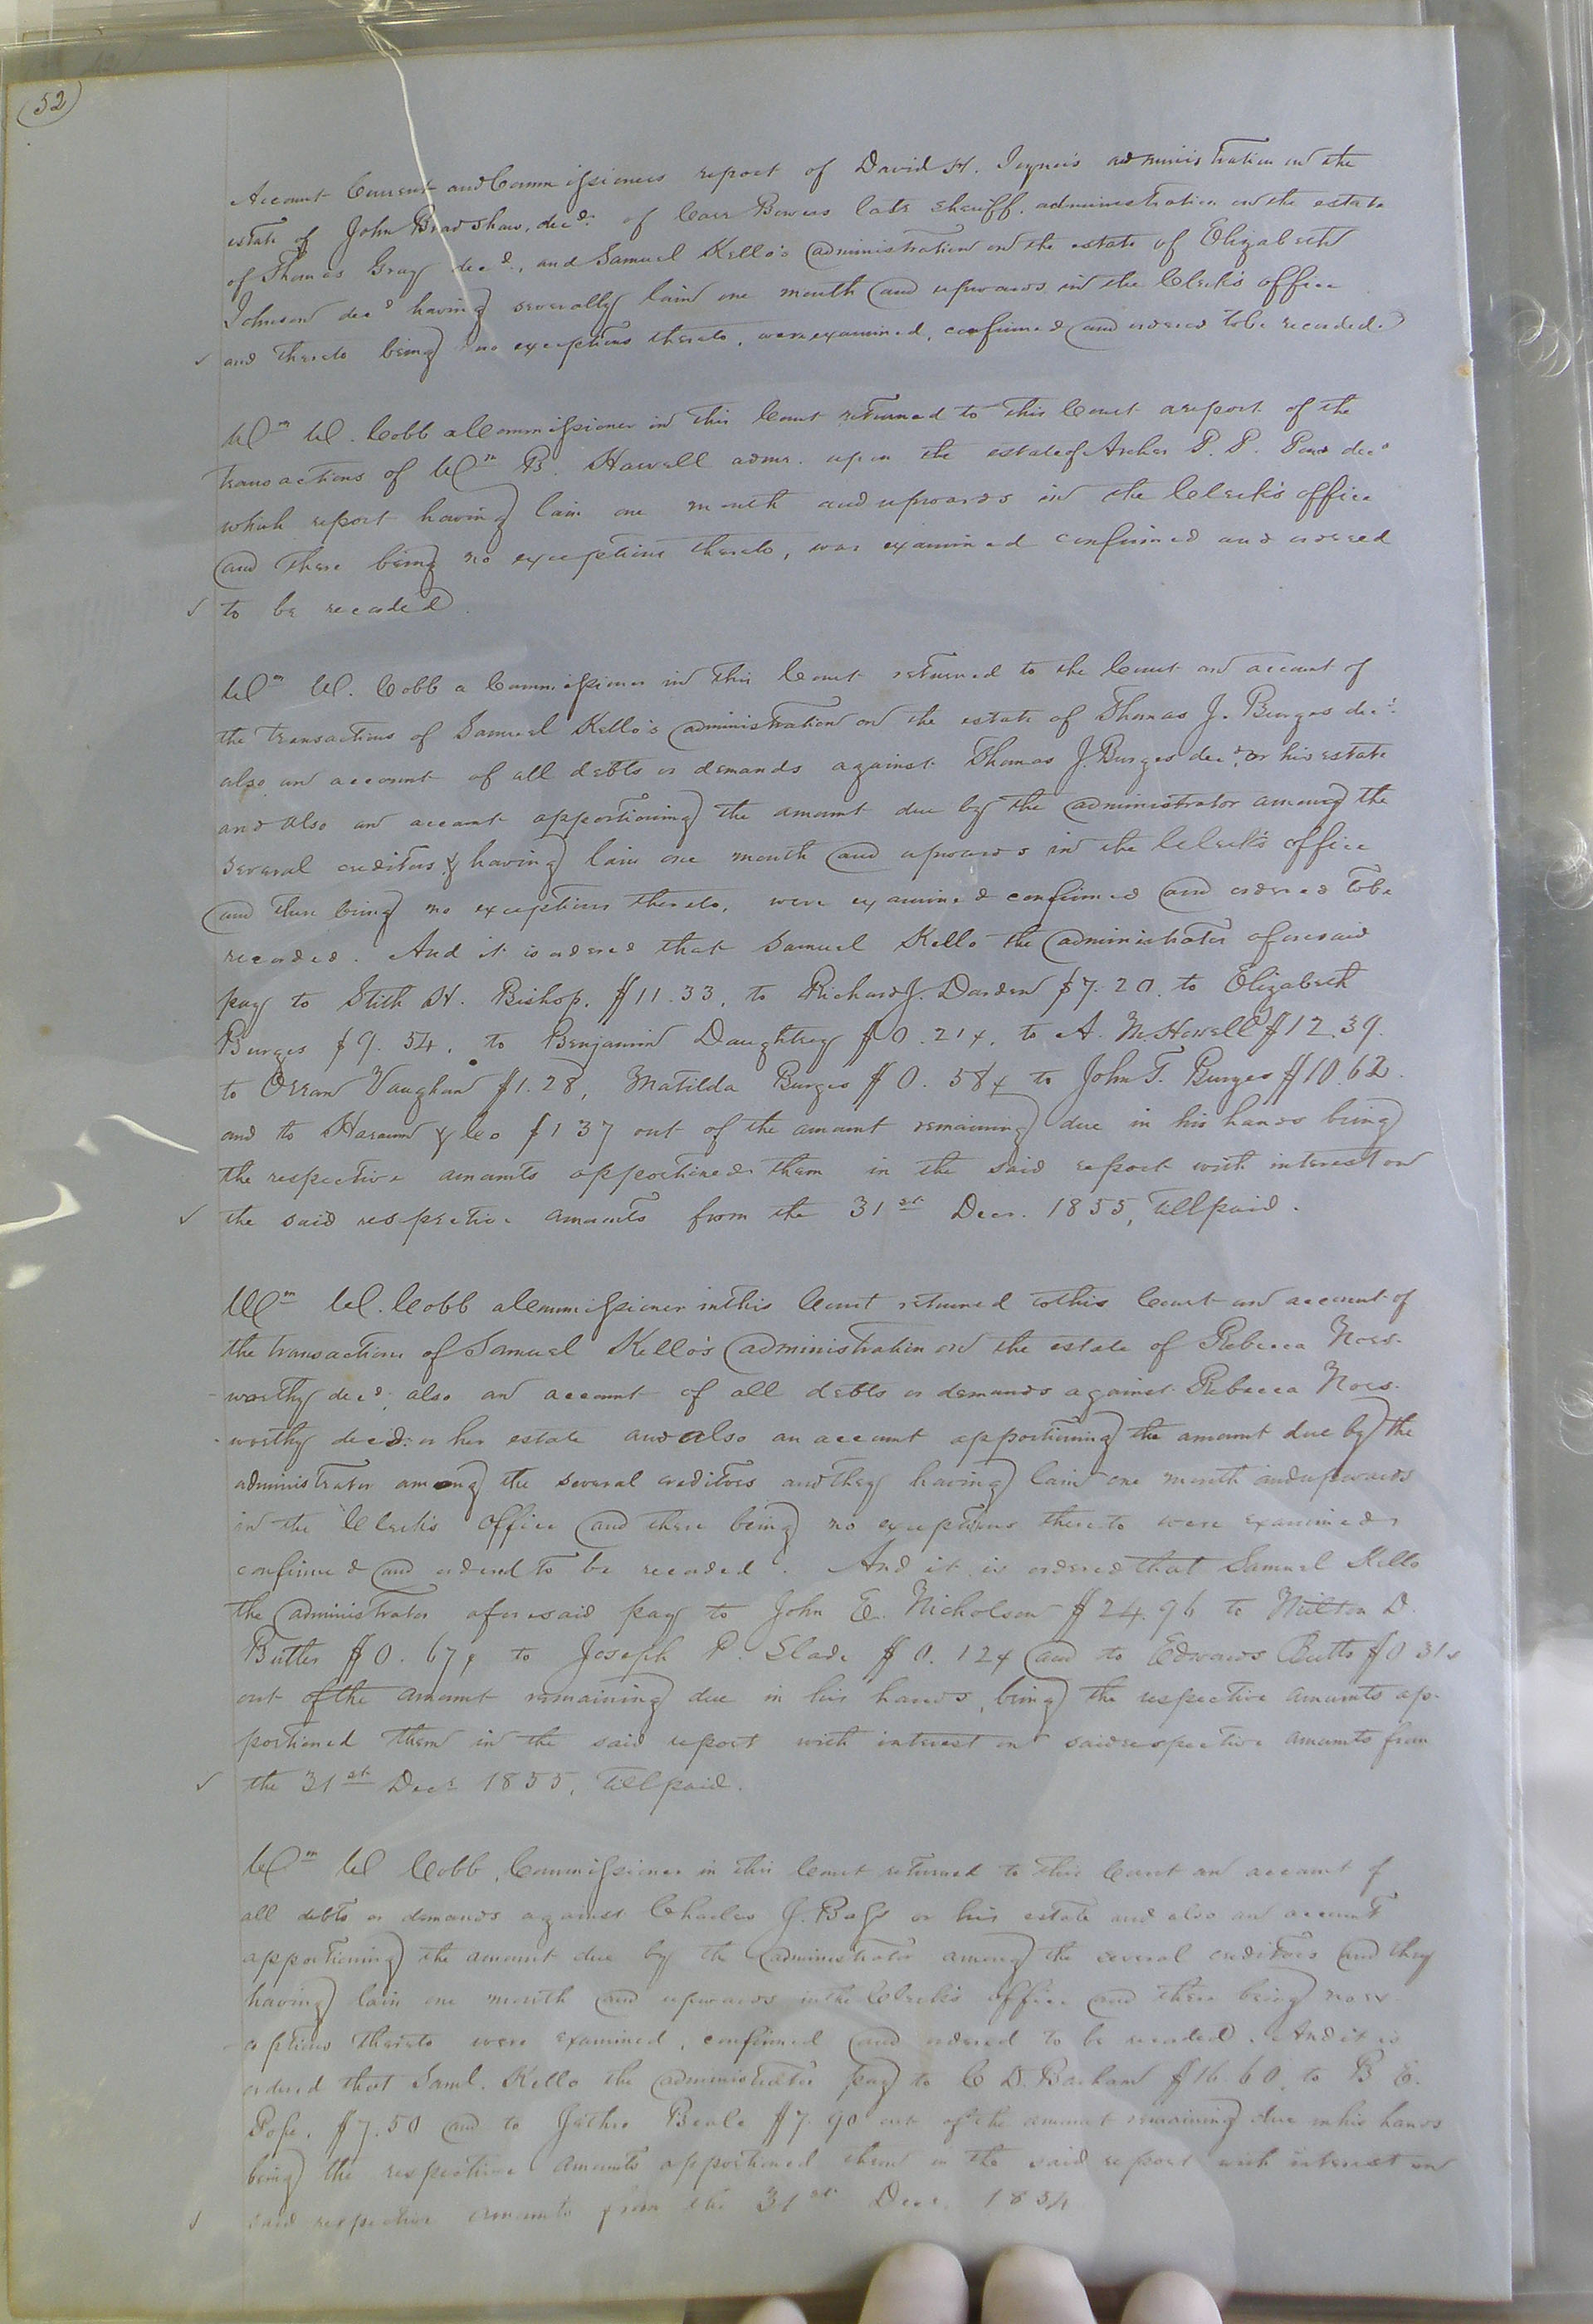 52
Account Current and Commissioners report of David H. Joyner's administration on the
estate of John Bradshaw, decd. of Carr Bowers late sheriff. administration on the estate
of Thomas Gray decd., and Samuel Kello's administration on the estate of Elizabeth
Johnson decd having severally lain one month and upwards in the Clerk's office
and thereto being no exceptions thereto, were examined, confirmed and ordered to be recorded.
Wm W. Cobb a Commissioner in this Court returned to this Court a report of the
transactions of Wm B. Howell admr. upon the estate of Archer P. P. decd
which report having lain one month and upwards in the Clerk's office
and there being no exceptions thereto, was examined confirmed and ordered
to be recorded.
Wm W. Cobb a Commissioner in this Court returned to the Court an account of
the transactions of Samuel Kello's administration on the estate of Thomas J. Burges decd.
also an account of all debts or demands against Thomas J. Burges decd. or his estate
and also an account apportioning the amount due by the administrator among the
several creditors & having lain one month and upwards in the Clerk's office
and there being no exceptions thereto, were examined confirmed and ordered to be
recorded. And it is ordered that Samuel Kello the administrator aforesaid
pay to Stith H. Bishop, $11.33, to Richard J. Darden $7.20. to Elizabeth
Burges $9.54, to Benjamin Daughtrey $0.21¢, to A. M. Howell $12.39.
to Orran Vaughan $1.28, Matilda Burges $0.58¢ to John T. Burges $10.62.
and to & Co $1 37 out of the amount remaining due in his hands being
the respective amounts apportioned them in the said report with interest on
the said respective amounts from the 31st Decr. 1855, till paid.
Wm W. Cobb a Commissioner in this Court returned to this Court an account of
the transactions of Samuel Kello's administration on the estate of Rebecca Nors-
worthy decd, also an account of all debts or demands against Rebecca Nors-
-worthy decd. or her estate and also an account apportioning the amount due by the
administrator among the several creditors and they having lain one month and upwards
in the Clerk's office and there being no exceptions thereto were examined
confirmed and ordered to be recorded. And it is ordered that Samuel Kello
the administrator aforesaid pay to John E. Nicholson $24.96 to Milton D.
Butler $0.67¢ to Joseph P. Slade $0.12¢ and to Edward Butts $0 31¢
out of the amount remaining due in his hands, being the respective amounts ap-
portioned them in the said report with interest on said respective amounts from
the 31st Decr 1855, till paid.
Wm W Cobb, Commissioner in this Court returned to this Court an account of
all debts or demands against Charles J. Bass or his estate and also an account
apportioning the amount due by the administrator among the several creditors and they
having lain one month and upwards in the Clerk's office and there being no ex-
-ceptions thereto were examined, confirmed and ordered to be recorded. And it is
ordered that Saml. Kello the administrator pay to C D. Barham $16.60, to B E.
Pope, $7.50 and to Jethro Beale $7.90 out of the amount remaining due in his hands
being the respective amounts apportioned them in the said report with interest on
said respective amounts from the 31st Decr. 1854